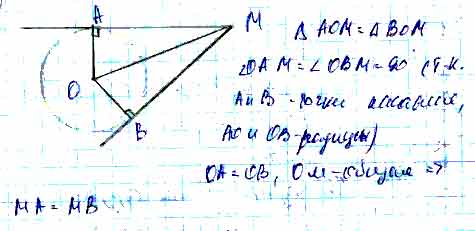 A
M
O
B
Δ AOM = Δ BOM
∠OAM = ∠OBM = 90° (т.к.
A и B - точки касания,
AO и OB - радиусы)
OA = OB, OM - общая =>
MA = MB